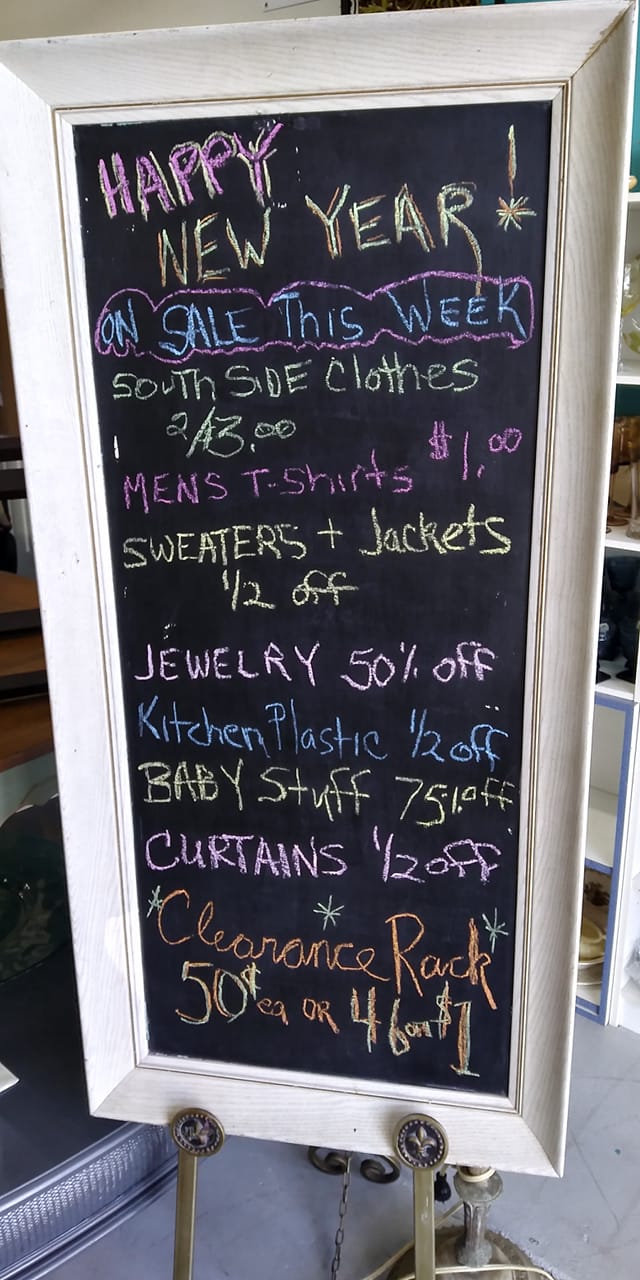 HAPPY
NEW YEAR!
ON SALE This WEEK
SOUTH SIDE Clothes
2/$3.00
MENS T-Shirts $1.00
SWEATERS + Jackets
1/2 off
JEWELRY 50% off
Kitchen Plastic 1/2 off
BABY Stuff 75% off
CURTAINS 1/2 off
*Clearance * Rack*
50¢ ea OR 4 for $1